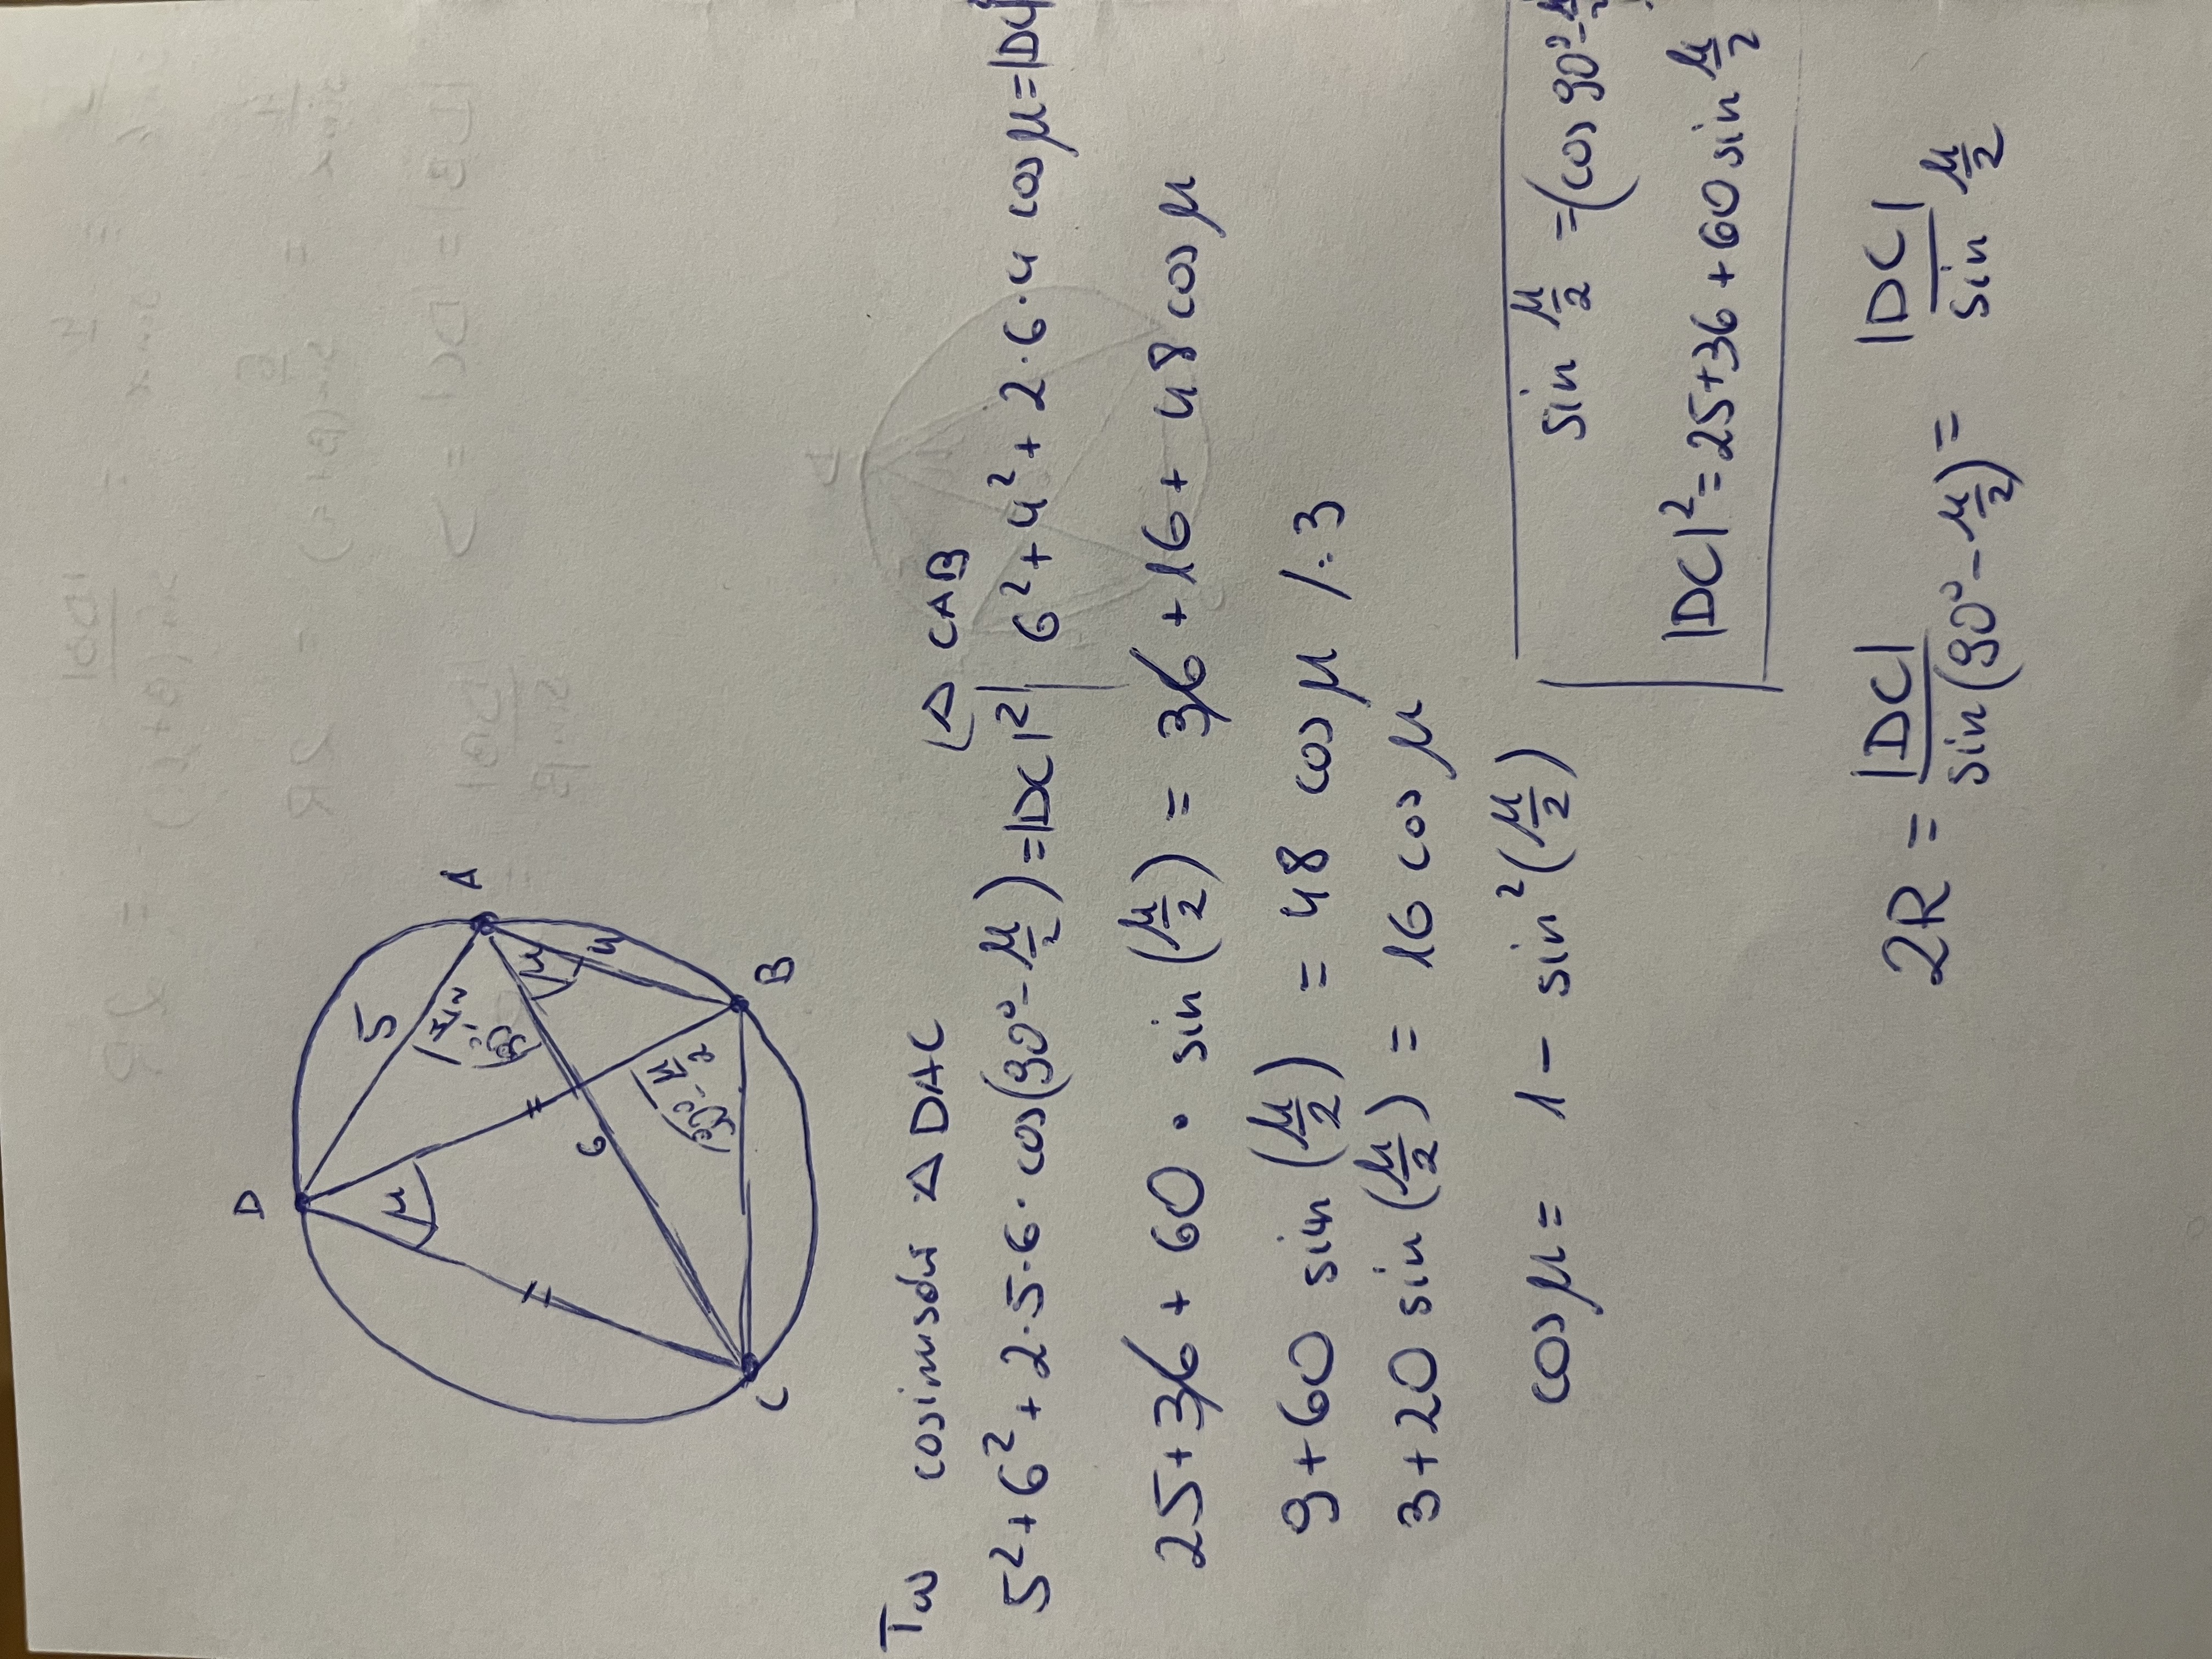 D
A
5
(90°-μ/2)
μ
4
μ
6
(90°-μ/2)
B
C
Tw cosinusów △ DAC
△ CAB
5²+6²+2·5·6·cos(90°-μ/2)=|DC|²
6²+4²+2·6·4 cosμ=|D
25+36+60·sin(μ/2) = 36+16+48 cosμ
9+60 sin(μ/2) = 48 cosμ /:3
3+20 sin(μ/2) = 16 cosμ
cosμ= 1-sin²(μ/2)
sin μ/2 =(cos 90°-
|DC|²=25+36+60 sin μ/2
2R = |DC|/sin(90°-μ/2) = |DC|/sin μ/2